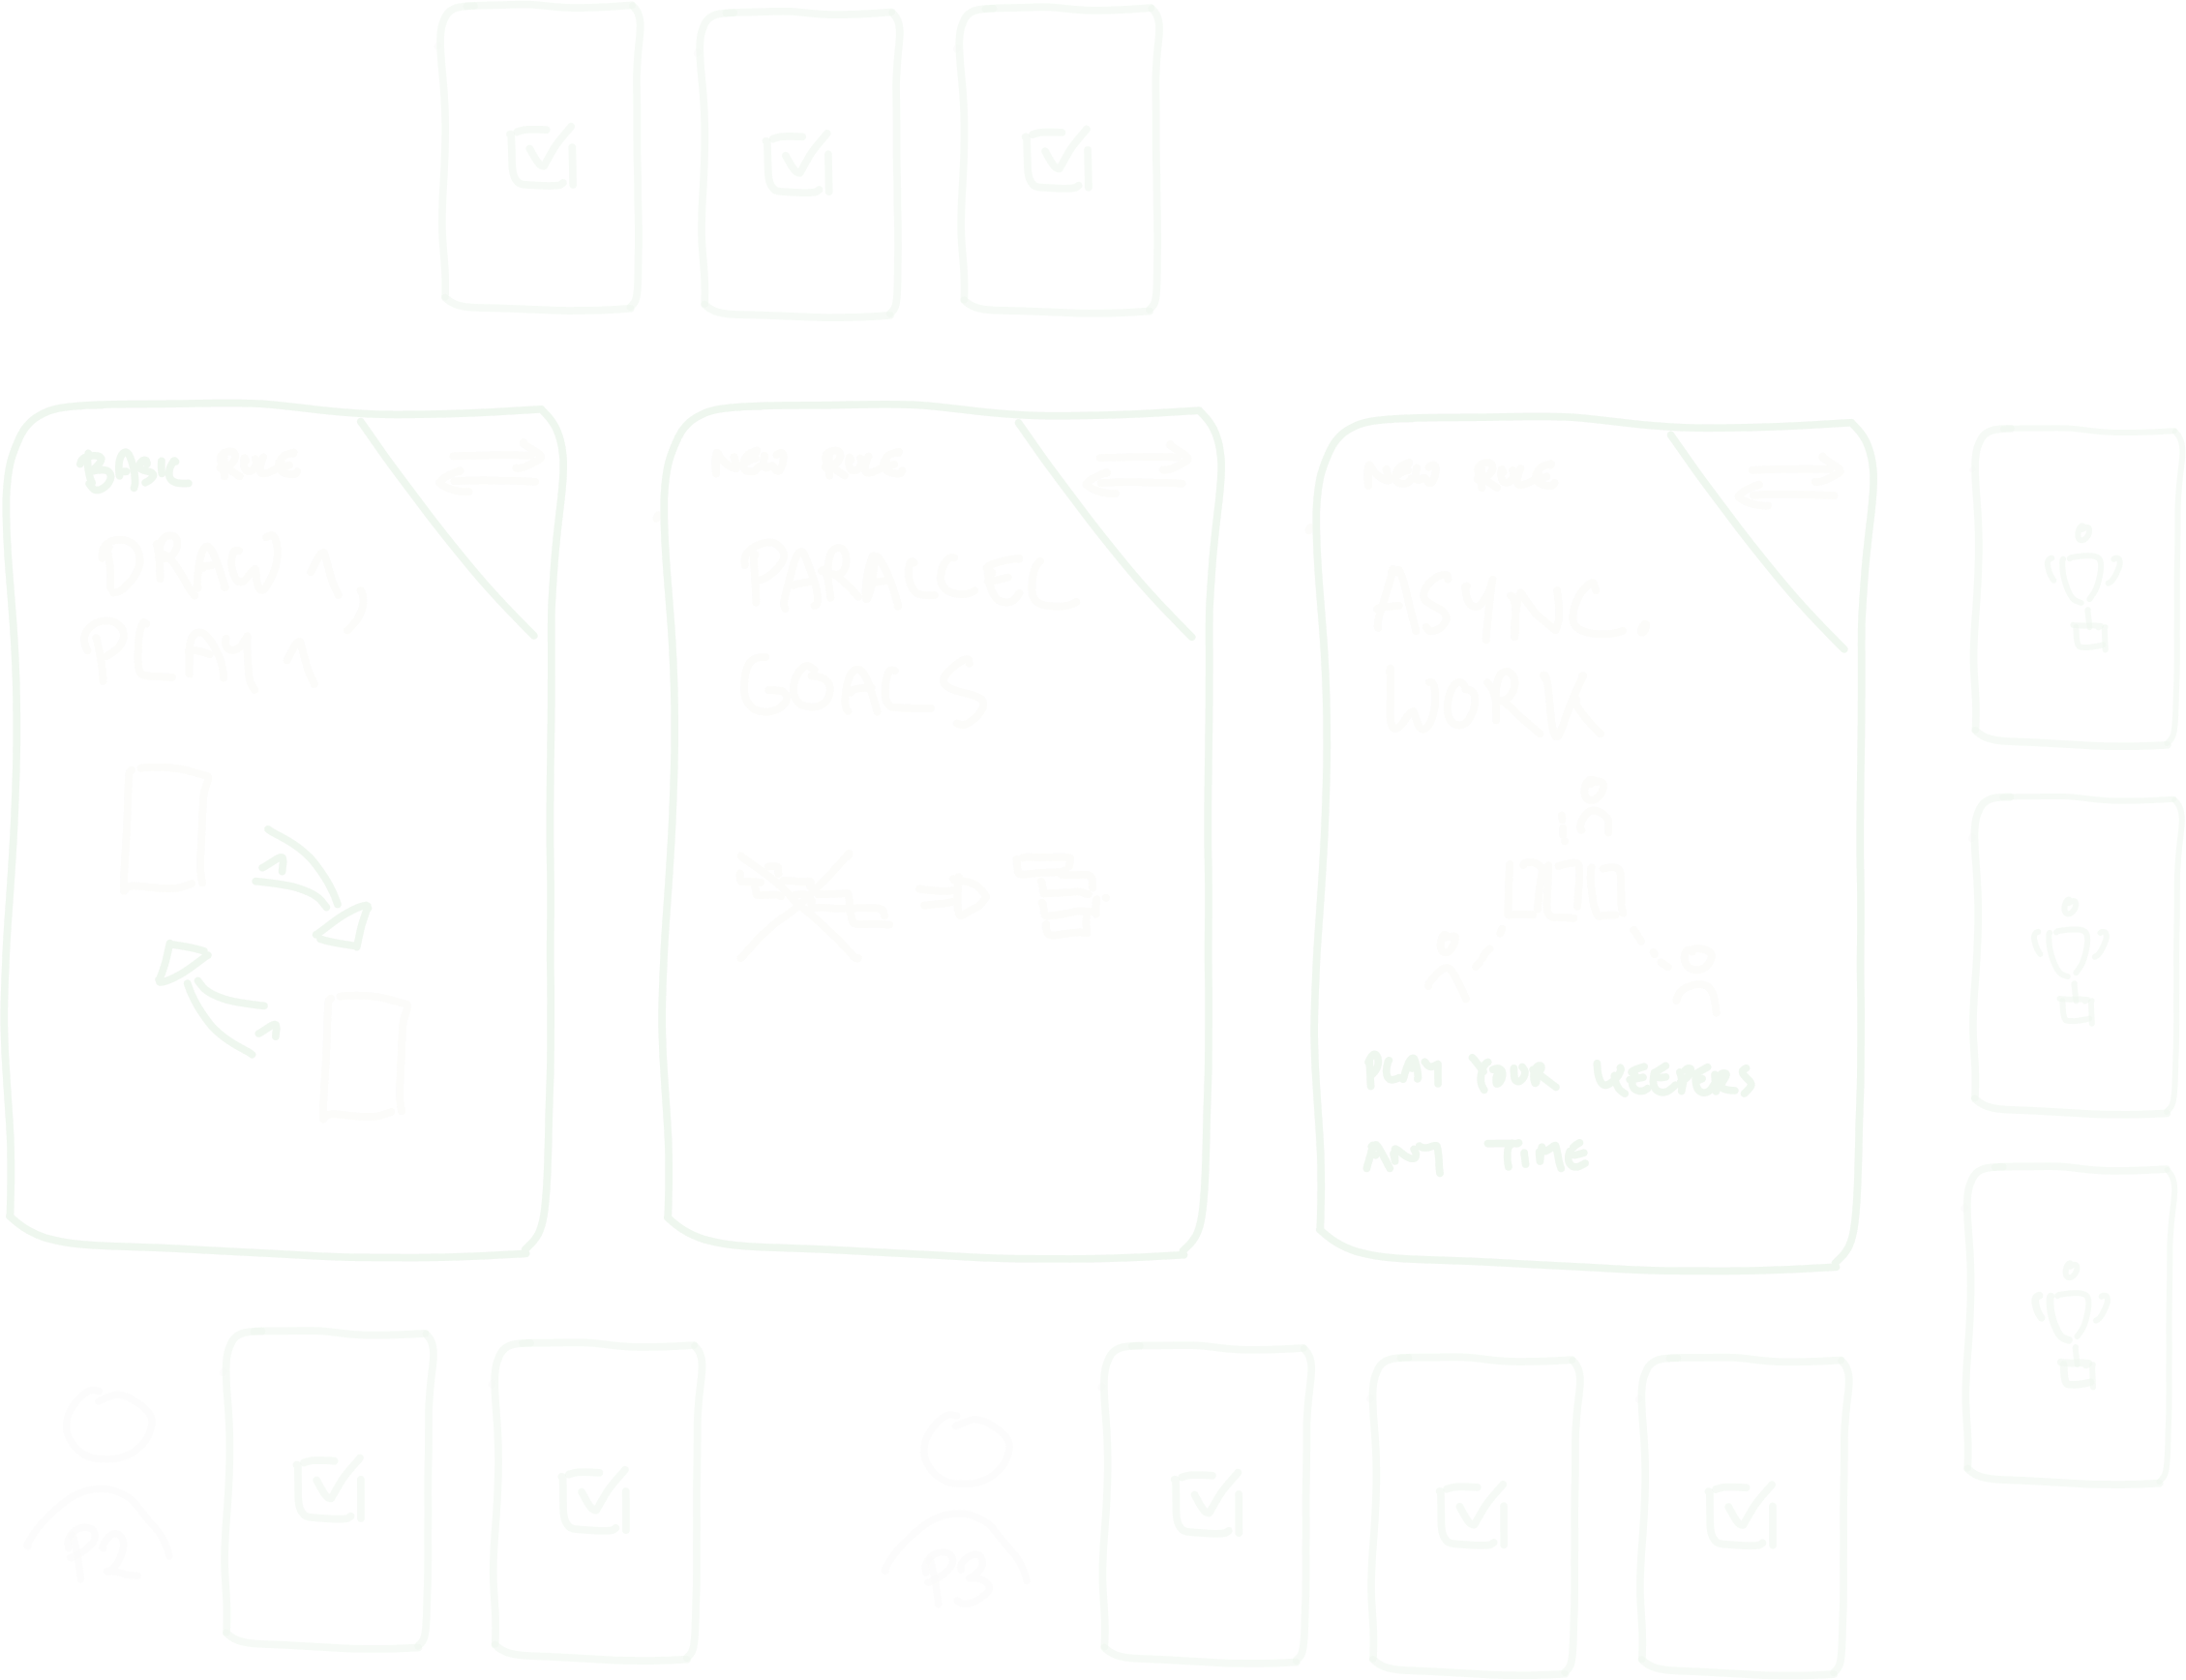 BASIC RULE
DRAW 1,
PLAY 1
1
1
NEW RULE
PARALLEL
GOALS
NEW RULE
ASYNC.
WORK
PLAY YOUR
ANY TIME
P2
P3